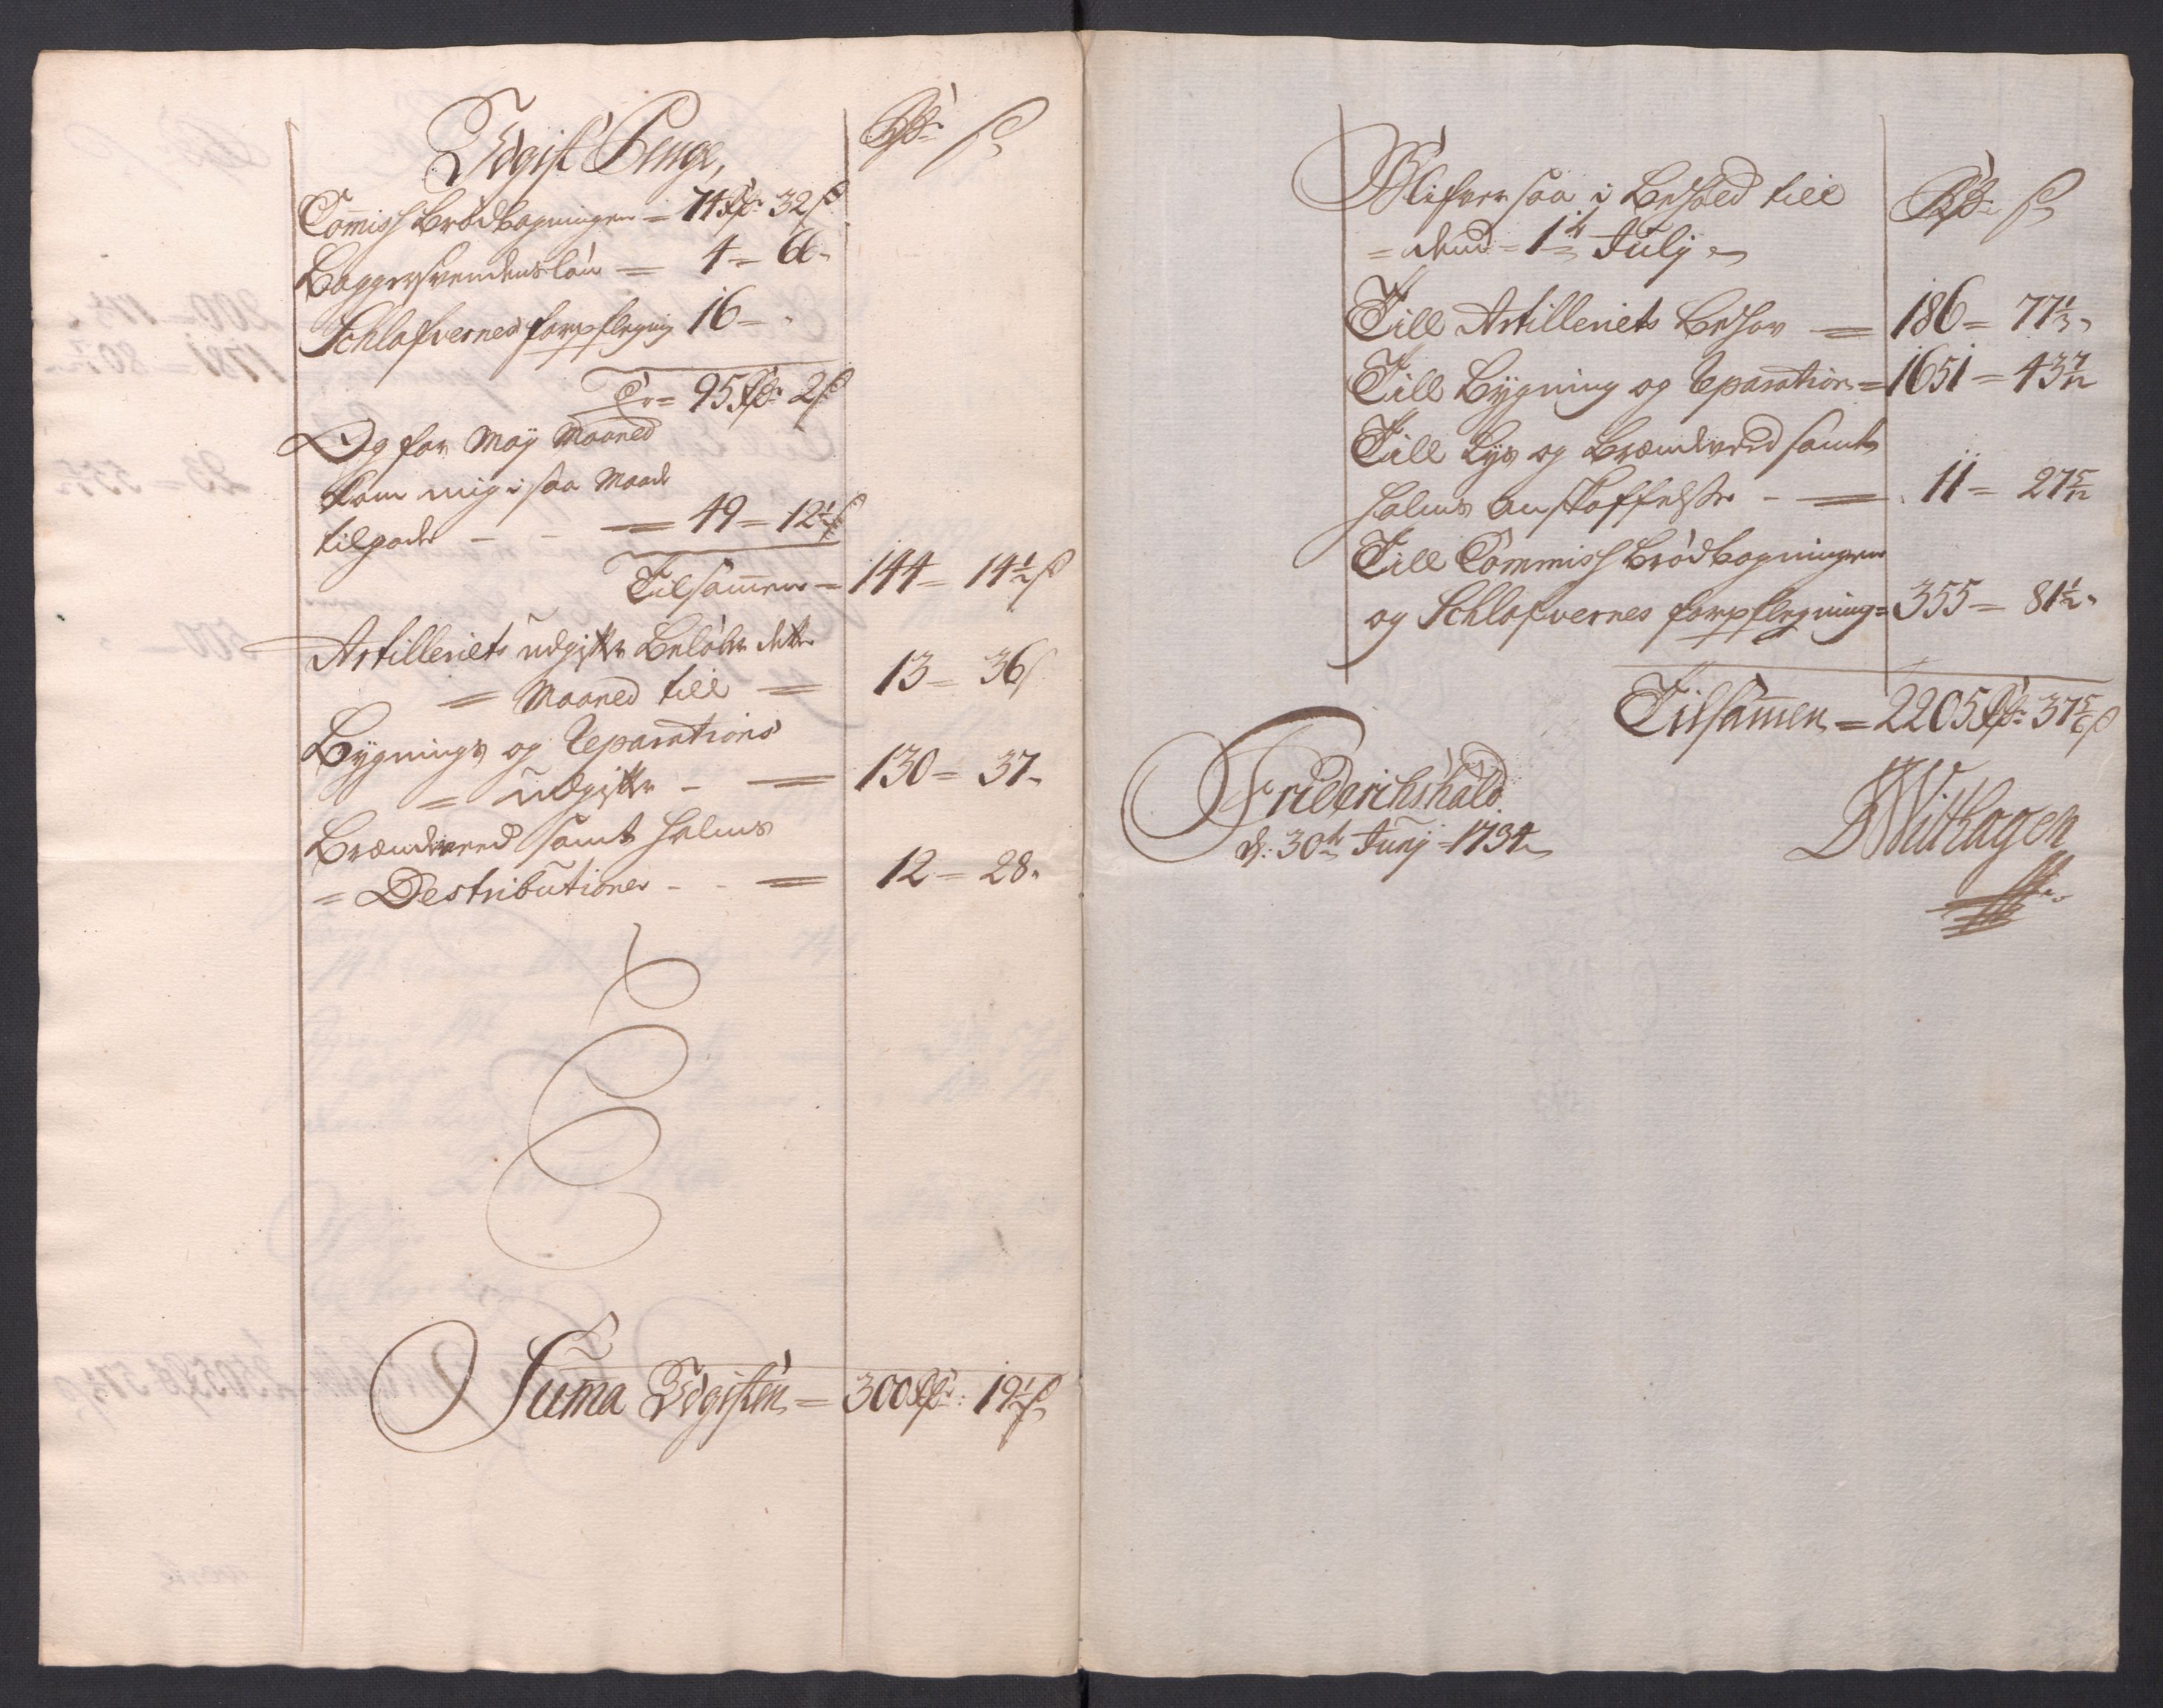 Udgift Penge,
Rdr ß
Com̅iss Brødbagningen = 74 Rdr 32 ß
Baggersvendens løn = 4 = 66 -
Schlafvernes forpflegning 16 - -
Er = 95 Rdr 2 ß
Og for Maÿ Maaned
kom mig i saa Maade
tilgode - - = 49 = 12½ ß
Tilsam̅en = 144 = 14½ ß
Artilleriets udgifter Beløber dette
= Maaned till = 13 = 36 ß
Bÿgnings og Reparations
= udgifter - = 130 = 37 -
Brændeveed samt halms
= Destributioner - - = 12 = 28 -
Sum̅a Udgiften = 300 Rdr: 19½ ß
Blifver saa i Behold till
= dend = 1te Julÿ
Rdr ß
Till Artilleriets Behov = 186 = 77⅓ -
Till Bÿgning og Reparation = 1651 = 43 7/12
Till Lÿs og Brændeveed samt
halms Anskaffelse - = 11 = 27 5/12
Till Commiss Brødbagningen
og Schlafvernes forpflegning = 355 = 81½ -
Tilsam̅en = 2205 Rdr 37⅚ ß
Friderichshald
d: 30te Junÿ 1734
DWithagen